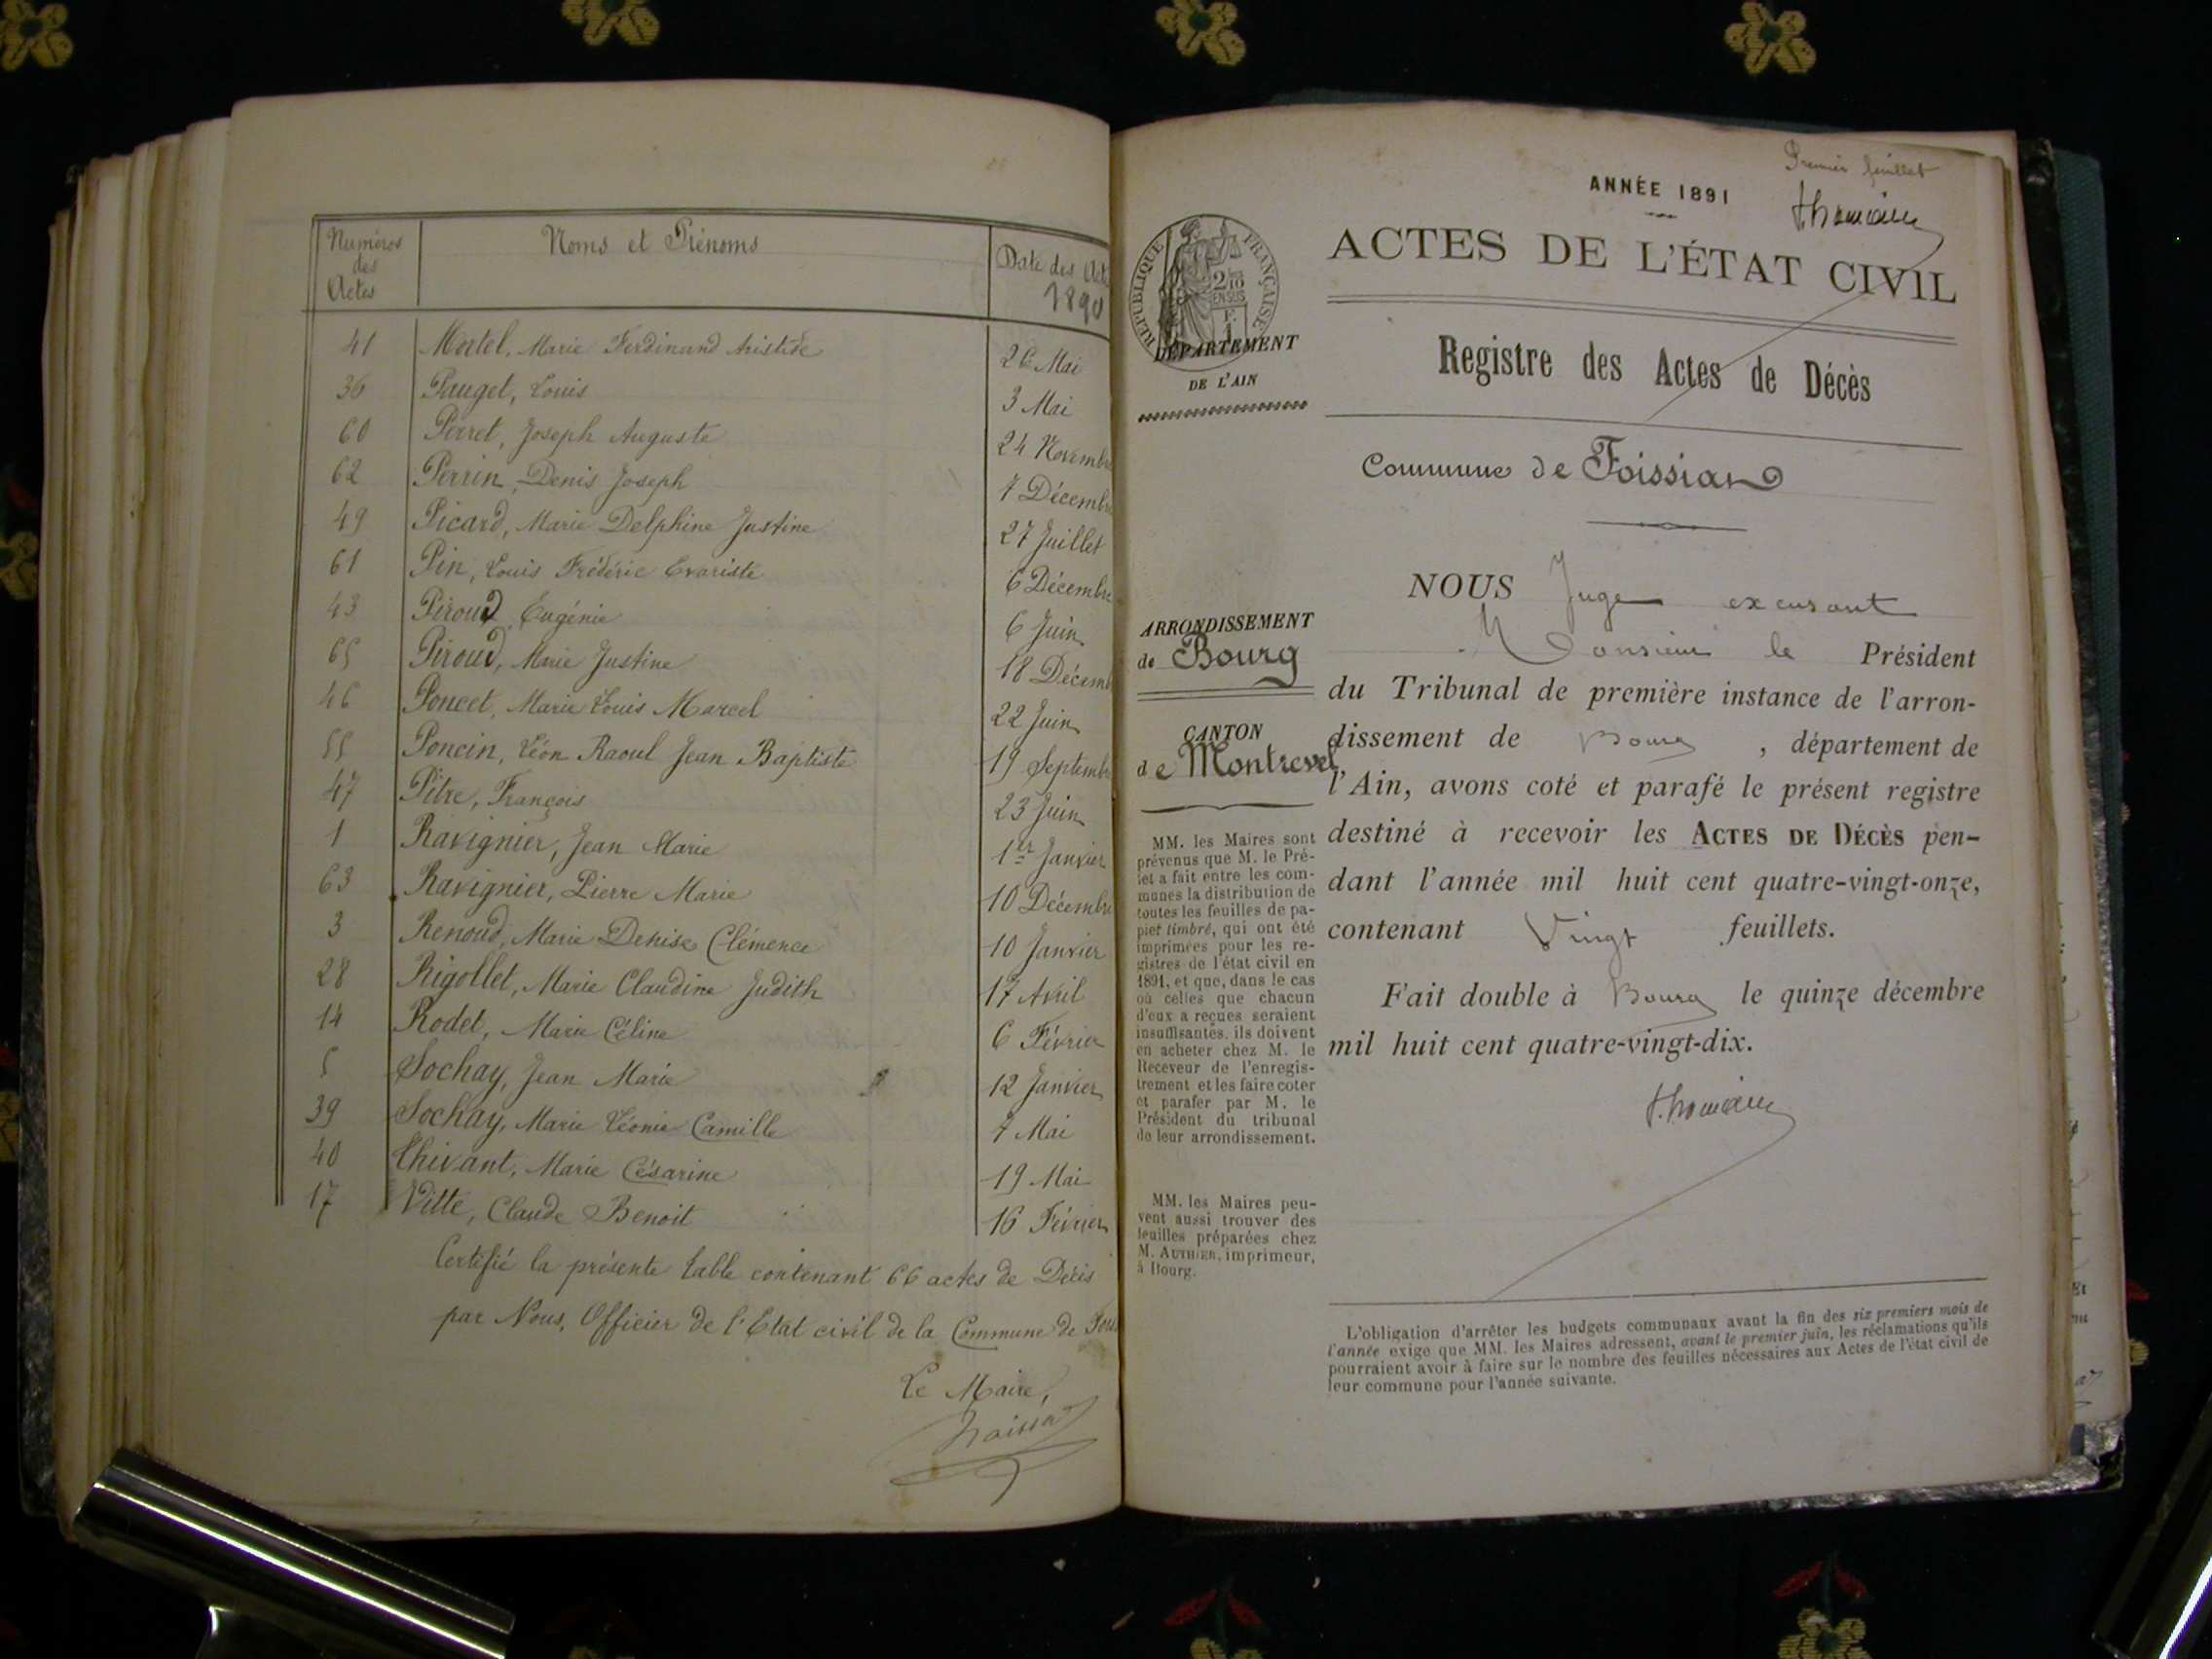 Numéros des Actes
Noms et Prénoms
Date des Act
1890
41 Mortel, Marie Ferdinand Aristide 26 Mai
36 Pauget, Louis 3 Mai
60 Perret, Joseph Auguste 24 Novembre
62 Perrin, Denis Joseph 7 Décembre
49 Picard, Marie Delphine Justine 27 Juillet
61 Pin, Louis Frédéric Evariste 6 Décembre
43 Piroud, Eugénie 6 Juin
65 Piroud, Marie Justine 18 Décemb
46 Poncet, Marie Louis Marcel 22 Juin
55 Poncin, Léon Raoul Jean Baptiste 19 Septembr
47 Pitre, François 23 Juin
1 Ravignier, Jean Marie 1er Janvier
63 Ravignier, Pierre Marie 10 Décembre
3 Renoud, Marie Denise Clémence 10 Janvier
28 Rigollet, Marie Claudine Judith 17 Avril
14 Rodet, Marie Céline 6 Février
5 Sochay, Jean Marie 12 Janvier
39 Sochay, Marie Léonie Camille 7 Mai
40 Thivant, Marie Césarine 19 Mai
17 Vitte, Claude Benoit 16 Février
Certifié la présente table contenant 66 actes de Décès
par Nous, Officier de l'Etat civil de la Commune de
Le Maire,
Premier feuillet
ANNÉE 1891
ACTES DE L'ÉTAT CIVIL
RÉPUBLIQUE FRANÇAISE
2/10
EN SUS
F.
1
DÉPARTEMENT
DE L'AIN
Registre des Actes de Décès
Commune de Foissiat
ARRONDISSEMENT
de Bourg
CANTON
de Montrevel
MM. les Maires sont
prévenus que M. le Pré-
fet a fait entre les com-
munes la distribution de
toutes les feuilles de pa-
pier timbré, qui ont été
imprimées pour les re-
gistres de l'état civil en
1891, et que, dans le cas
où celles que chacun
d'eux a reçues seraient
insuffisantes, ils doivent
en acheter chez M. le
Receveur de l'enregis-
trement et les faire coter
et parafer par M. le
Président du tribunal
de leur arrondissement.
MM. les Maires peu-
vent aussi trouver des
feuilles préparées chez
M. AUTHIER, imprimeur,
à Bourg.
NOUS Juge excusant
Monsieur le Président
du Tribunal de première instance de l'arron-
dissement de Bourg, département de
l'Ain, avons coté et parafé le présent registre
destiné à recevoir les ACTES DE DÉCÈS pen-
dant l'année mil huit cent quatre-vingt-onze,
contenant Vingt feuillets.
Fait double à Bourg le quinze décembre
mil huit cent quatre-vingt-dix.
L'obligation d'arrêter les budgets communaux avant la fin des six premiers mois de
l'année exige que MM. les Maires adressent, avant le premier juin, les réclamations qu'ils
pourraient avoir à faire sur le nombre des feuilles nécessaires aux Actes de l'état civil de
leur commune pour l'année suivante.